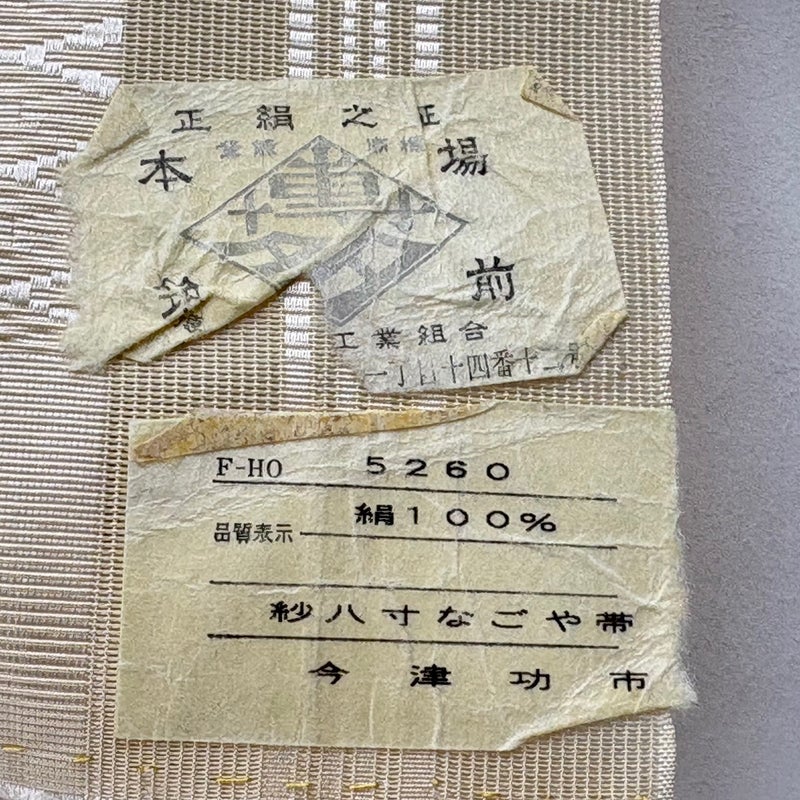 正絹之正
本場
筑前
工業組合
一丁目十四番十二号
F-HO 5260
品質表示 絹100%
紗八寸なごや帯
今津功市